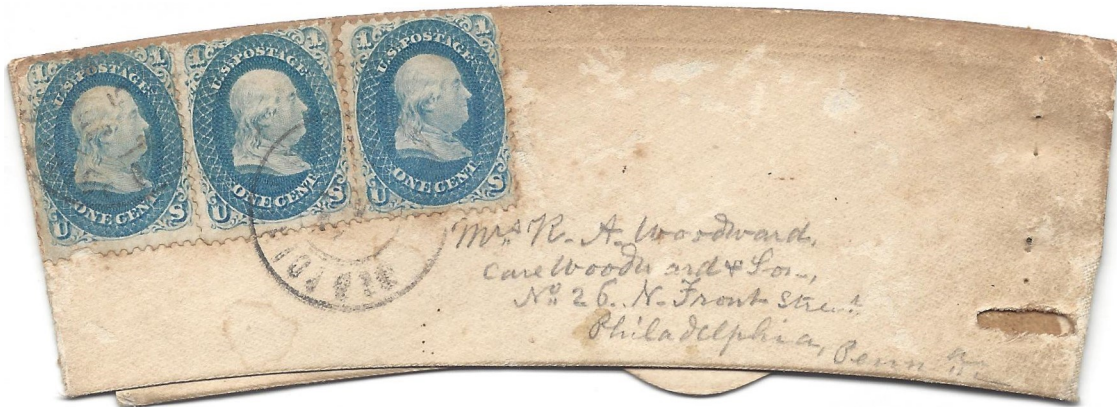 1 1
U.S. POSTAGE
ONE CENT
U S
1 1
U.S. POSTAGE
ONE CENT
U S
1 1
U.S. POSTAGE
ONE CENT
U S
OLD POI
Mrs R. A. Woodward,
Care Woodward & Son,
No 26. N. Front Street
Philadelphia, Penn a.